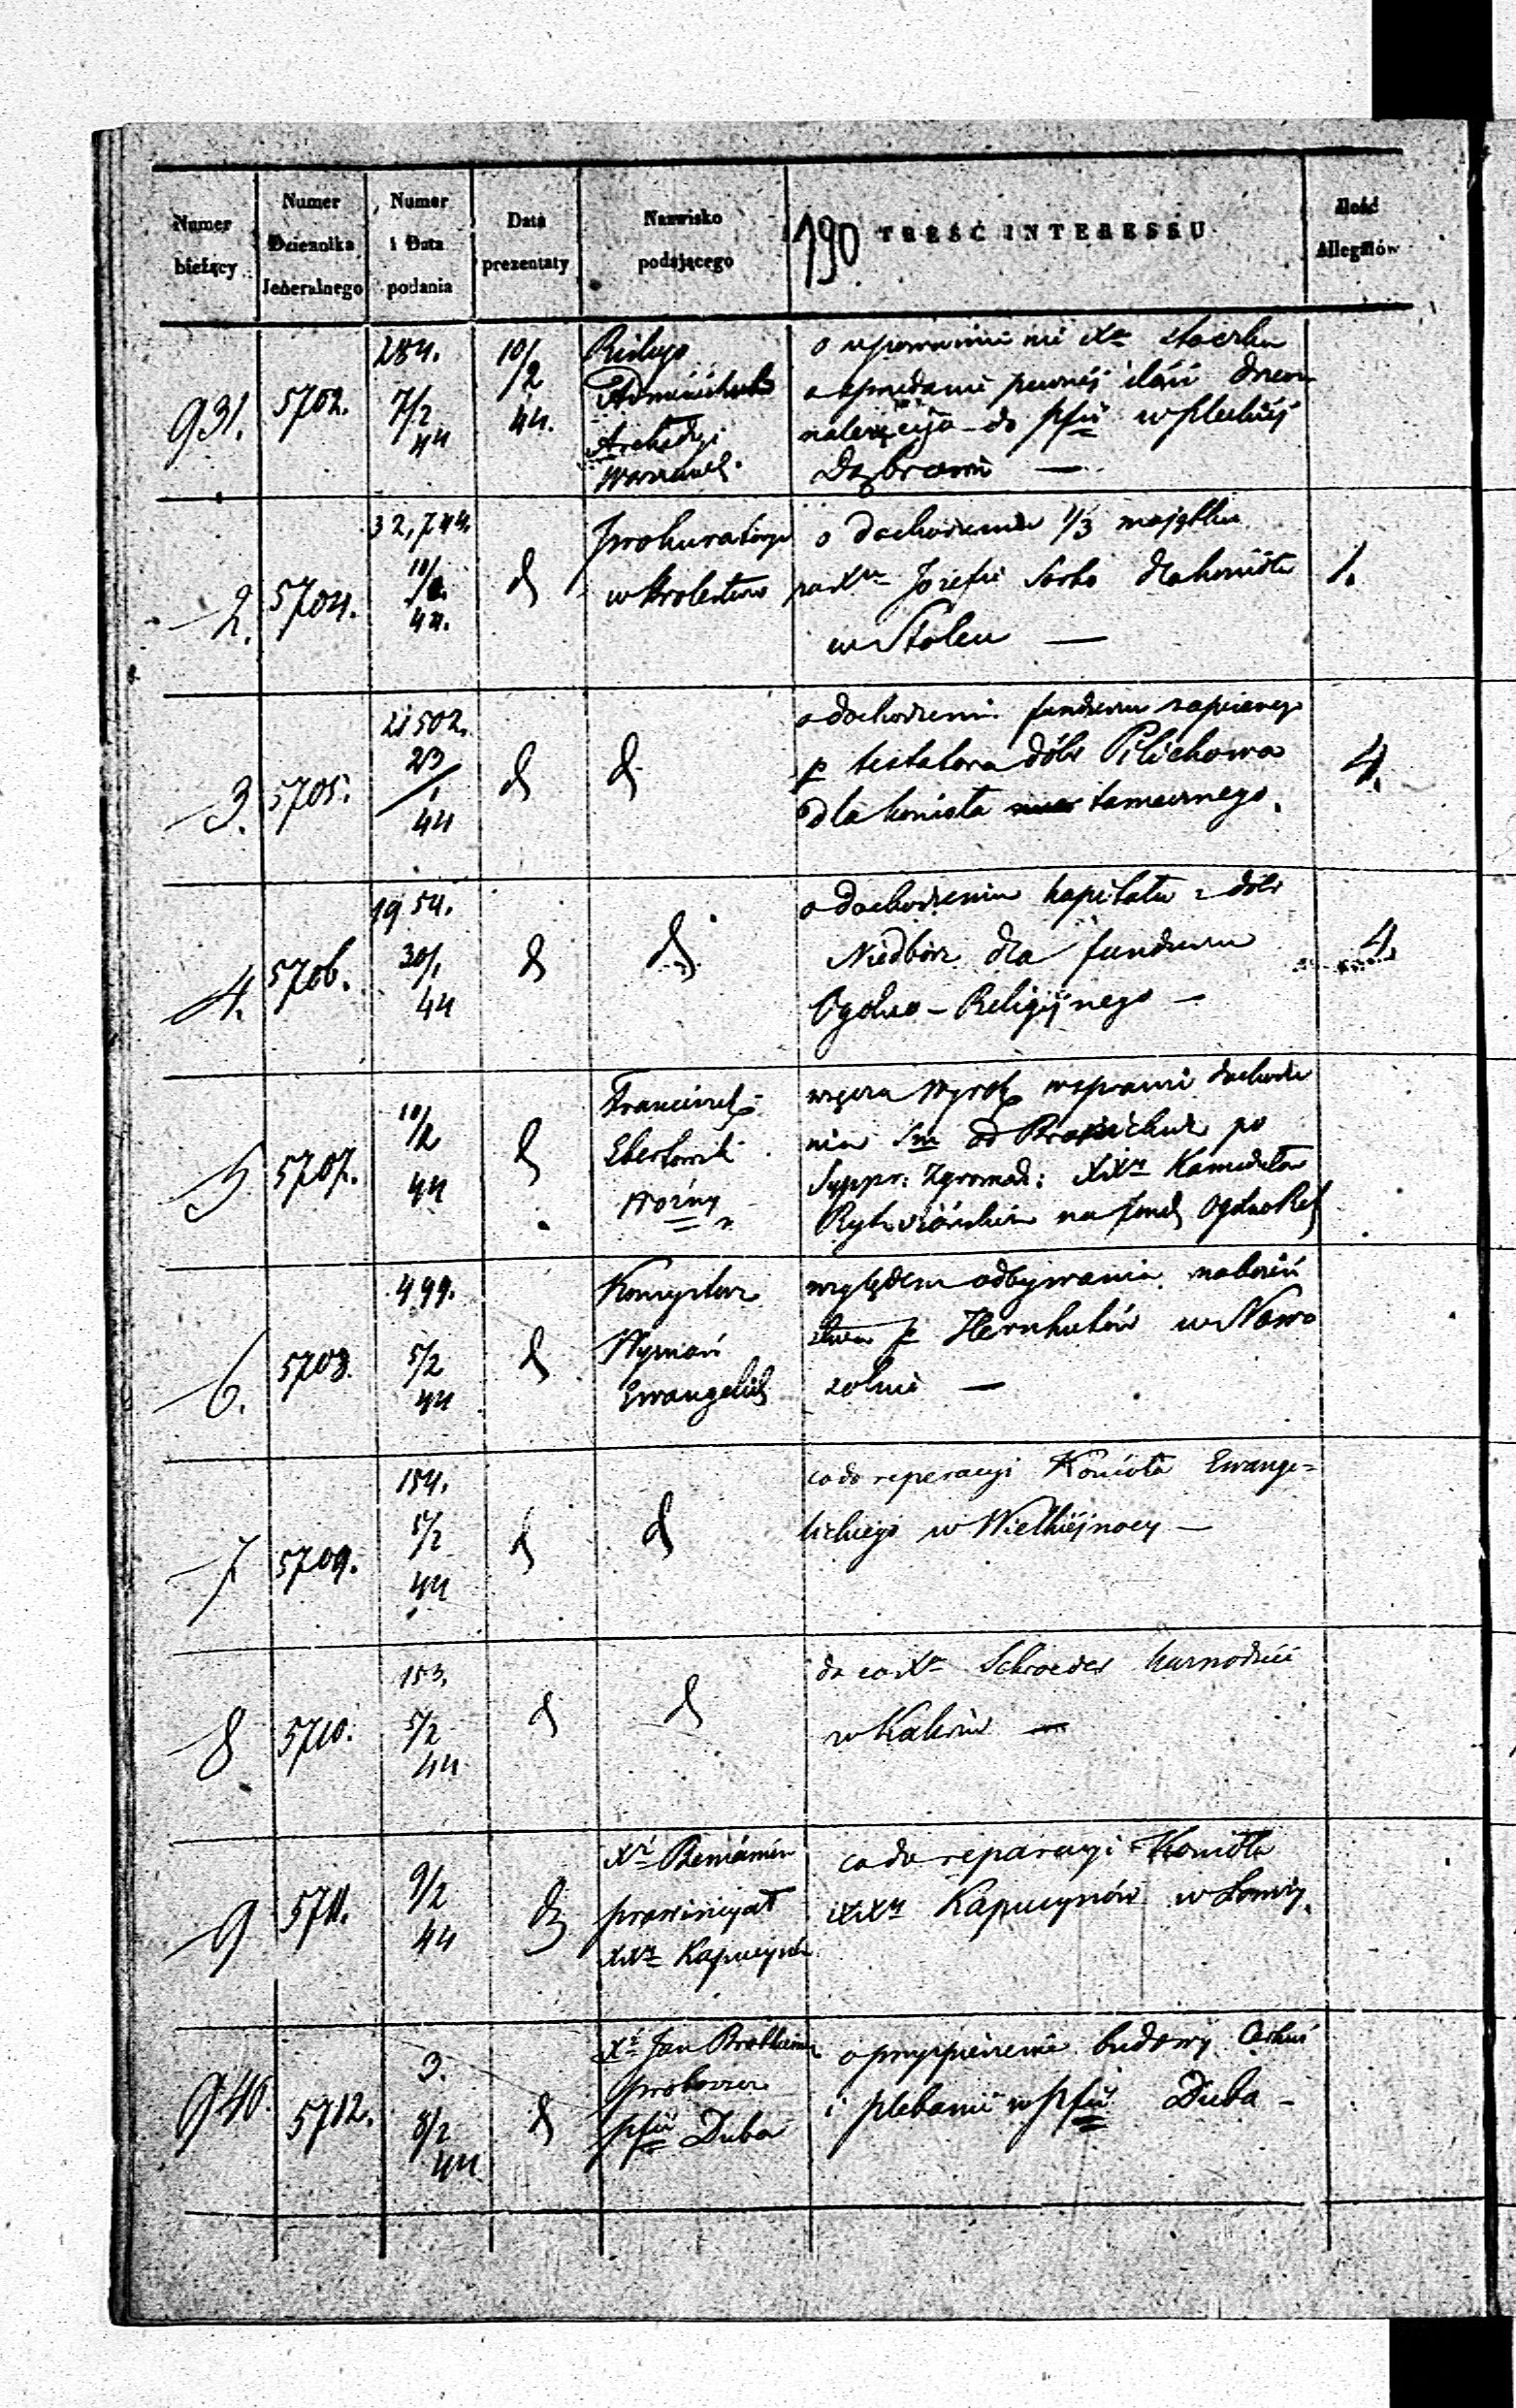 Numer bieżący
Numer Dziennika Jeneralnego
Numer i Data podania
Data prezentaty
Nazwisko podającego
190 TREŚĆ INTERESSU
Ilość Allegatów
931. 5702. 284. 7/2 44 10/2 44.
Archidyi
o upomnienie
o sprzedanie pewnéj ilości drzewa
do pfii
—
2. 5704. 32,744. 44. d
Prokuratorya
w Królestwie
o dochodzeniu 1/3 majątku
po Józefie dla kościoła
w Stolcu —
1.
3. 5705. 21502. 23/1 44 d d
o dochodzeniu funduszu zapisanego
p testatora dóbr Pilichowa
dla kościoła tamecznego.
4.
4. 5706. 1954. 30/1 44 d d
o dochodzeniu kapitału z dóbr
Niedbórz dla funduszu
Ogólno-Religijnego —
4.
5. 5707. 10/2 44 d
Franciszek
Woźny
wręcza Wyrok w sprawie dochodze
nia od po
Suppr: Zgromad: XXży Kamedułów
Rytwiańskich na fund Ogólno Rel
6. 5708. 499. 5/2 44 d
Konsystorz
Wyznań
Ewangelick
względem odbywania nabożeń
stwa p Hernhutów w Nowo
solnie —
7. 5709. 154. 5/2 44 d d
co do reperacyi Kościoła Ewange=
lickiego w Wielkiéjnocy —
8 5710. 153. 5/2 44 d d
Schroeder
w Kaliszu —
9 5711. 9/2 44 d
Xdz Beniamin
prowincyał
XXży Kapucynów
co do reparacyi Kościoła
XXży Kapucynów w Łomży.
940. 5712. 3. 8/2 44 d
Xdz Jan
proboszcz
pfii Duba
o przyspieszenie budowy Cerkwi
i plebanii w pfii Duba —